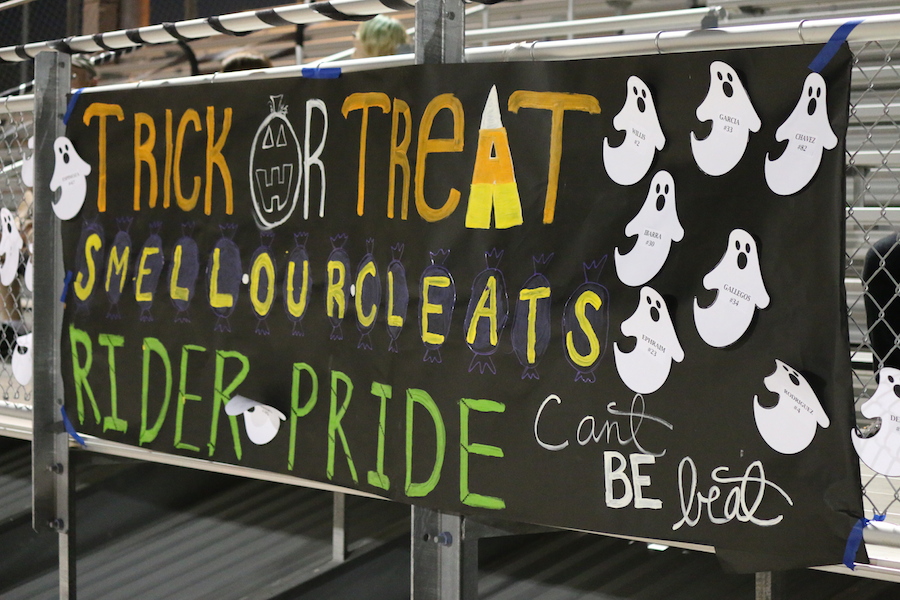 TRICK OR TREAT
SMELL OUR CLEATS
RIDER PRIDE
Can't
BE
beat
WILLIS
#2
GARCIA
#33
CHAVEZ
#82
IBARRA
#30
GALLEGOS
#34
EPHRAIM
#23
RODRIGUEZ
#4